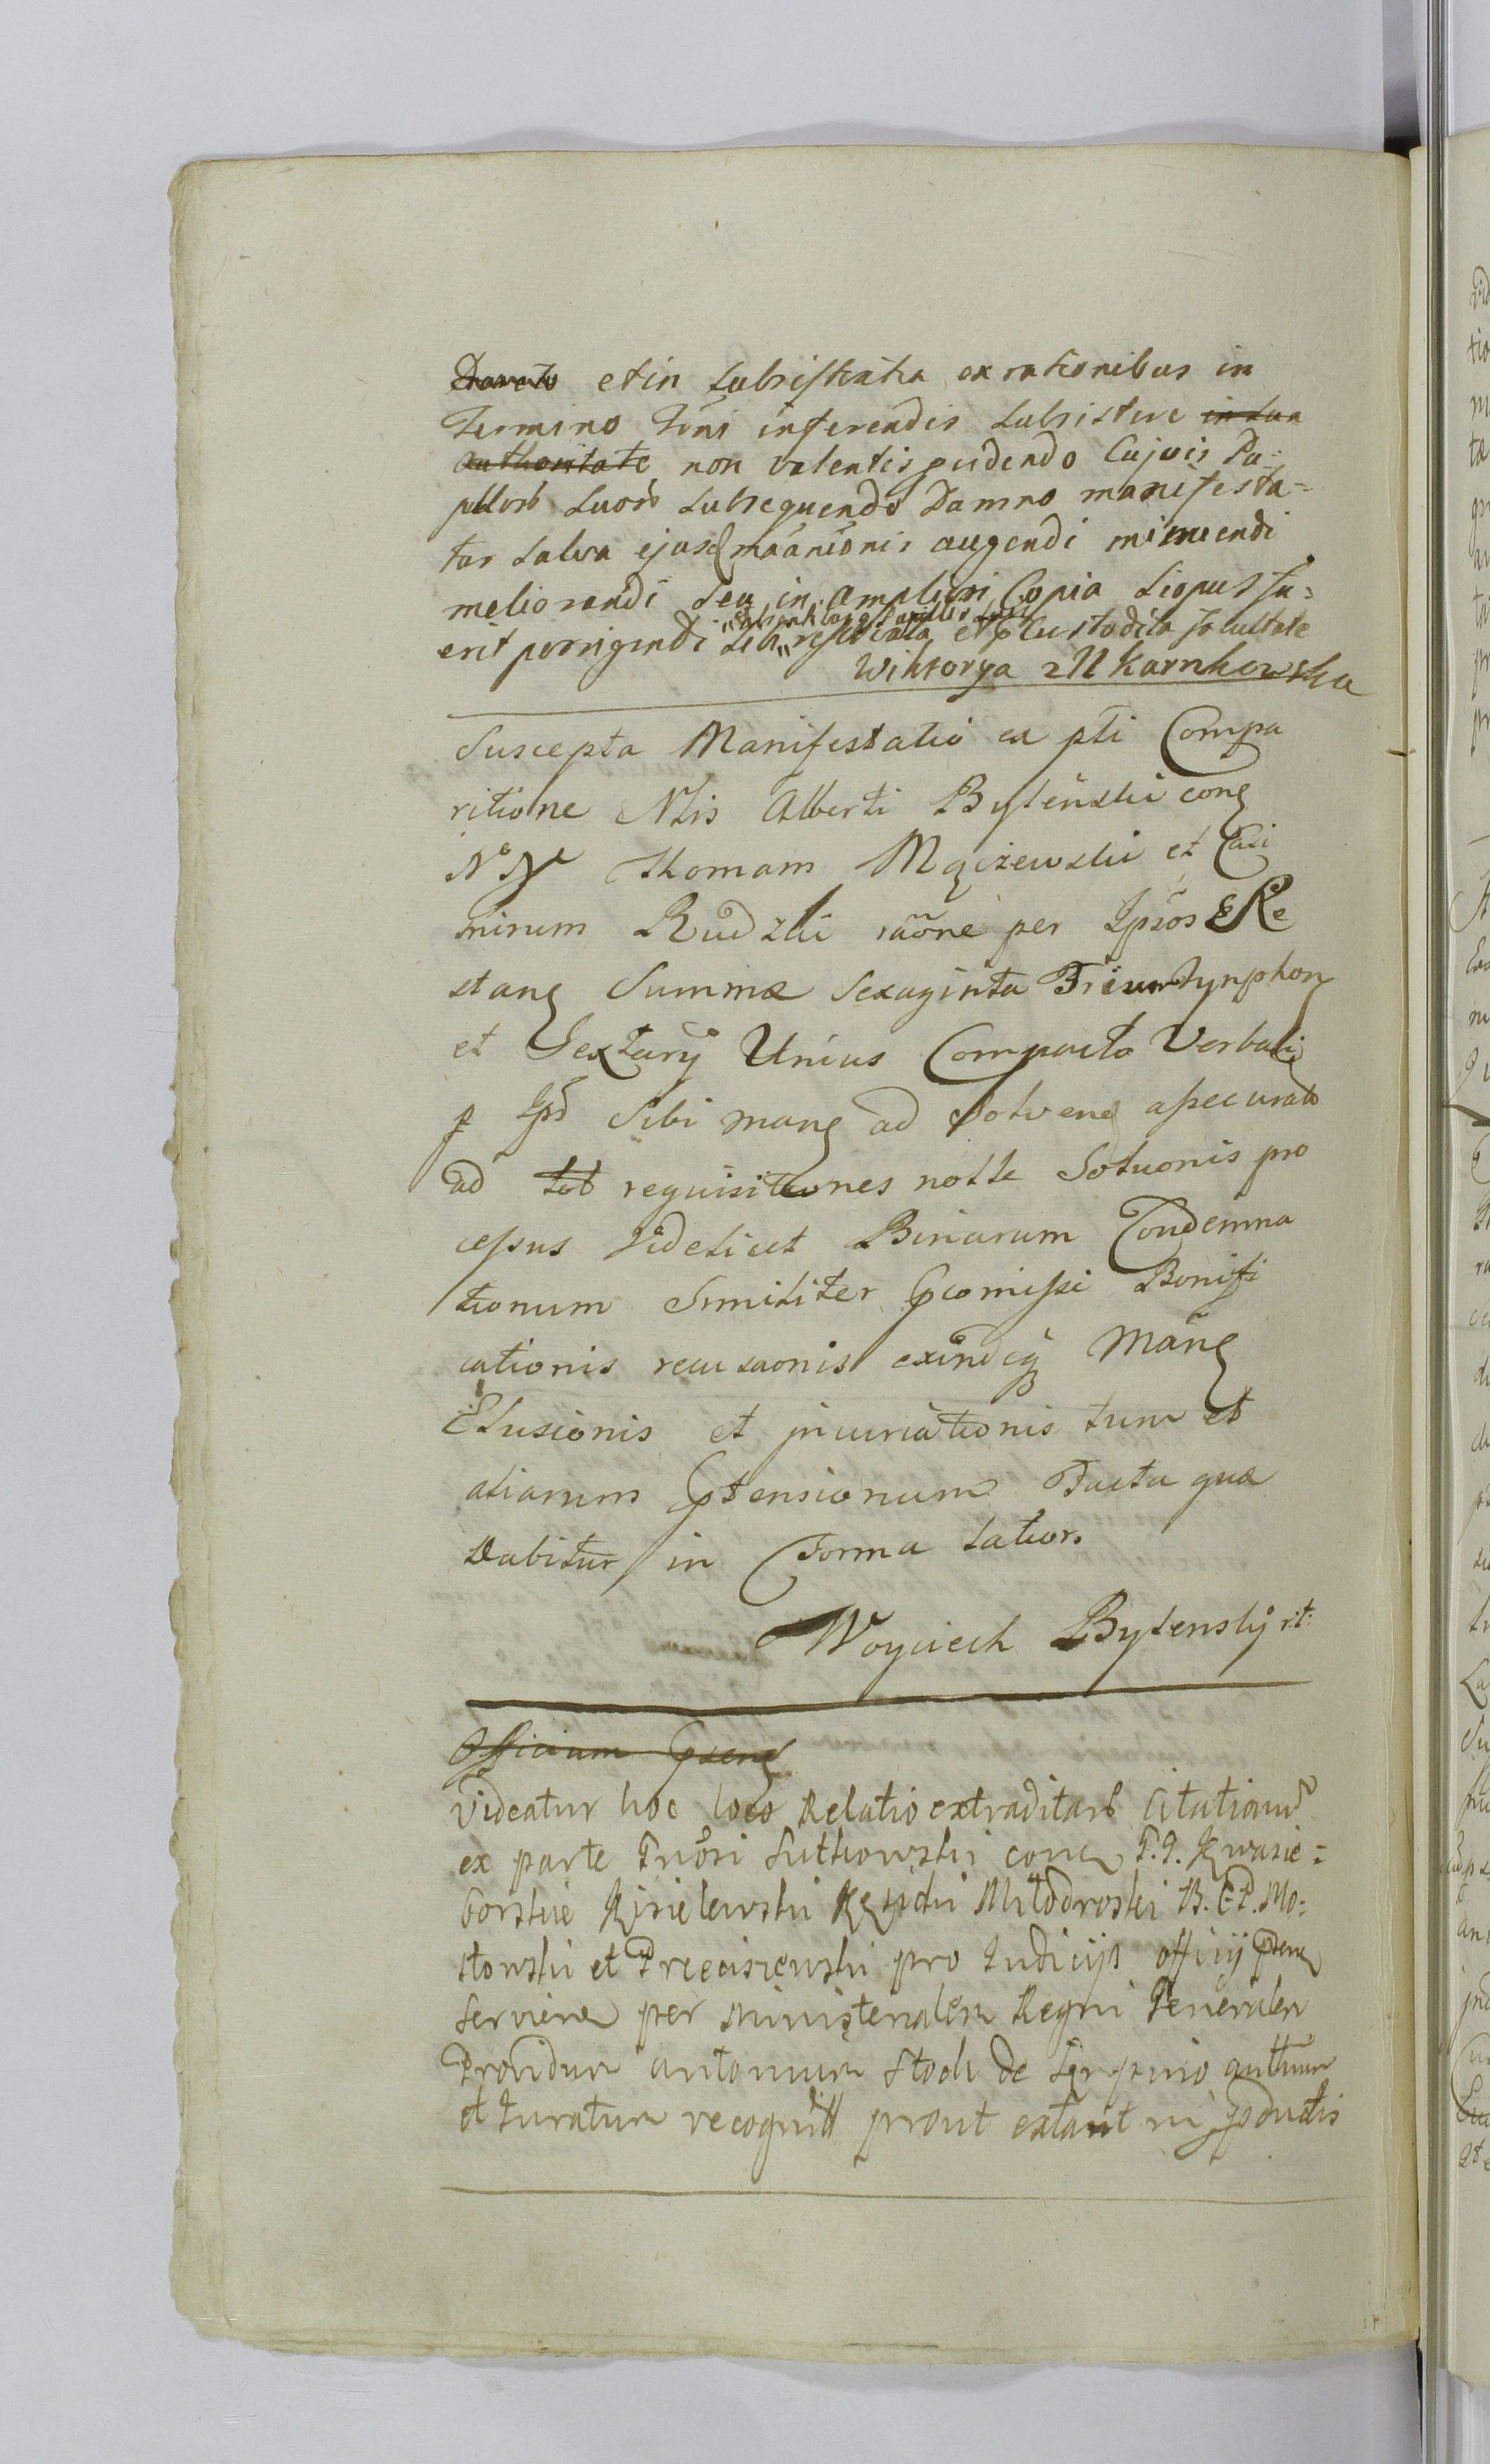 et in subsistentia ex rationibus in
Termino Tõni inferendis subsistere in sua
authoritate non valentis pudendo Cujuis Pu=
pllorb suorb subsequendo Damno manifesta=
tur salva ejusd mãanõnis augendi minuendi
meliorandi seu in ampliori Copia si opus fu=
erit porrigendi sibi reservata et custodita facultate
Wiktorya Karnkowska
Suscepta Manifestatio ex pti Compa
ritione Nlis Alberti Bylenski cong
N N Thomam Mączewski et Casi
mirum Rudzki raõne per Ipsos Re
stang Summæ Sexaginta Trium Tynphon
et Sextarÿ Unius Compacto Verbali
p Ipõ Sibi mang ad Solveng assecurato
ad tot requisitiones nolle Soluonis pro
cessus Videlicet Binarum Condemna
tionum Similiter promissi Bonifi
cationis recusaonis exindeq Mang
Elusionis et injuriationis tum et
aliarum ptensionum Facta quæ
Dabitur in Forma latiori
Woyciech Bylensky rt:
Officium pseng
Videatur hoc loco Relatio extraditarb Citationu
ex parte Lutkowski cong Kwasie=
borskie Kisielewski B. Mo=
stowski et pro Judicijs officij pseng
servieng per Ministerialem Regni Generalen
Providum antonium Stoch de authum
et Juratum recognitt prout extant in pductis